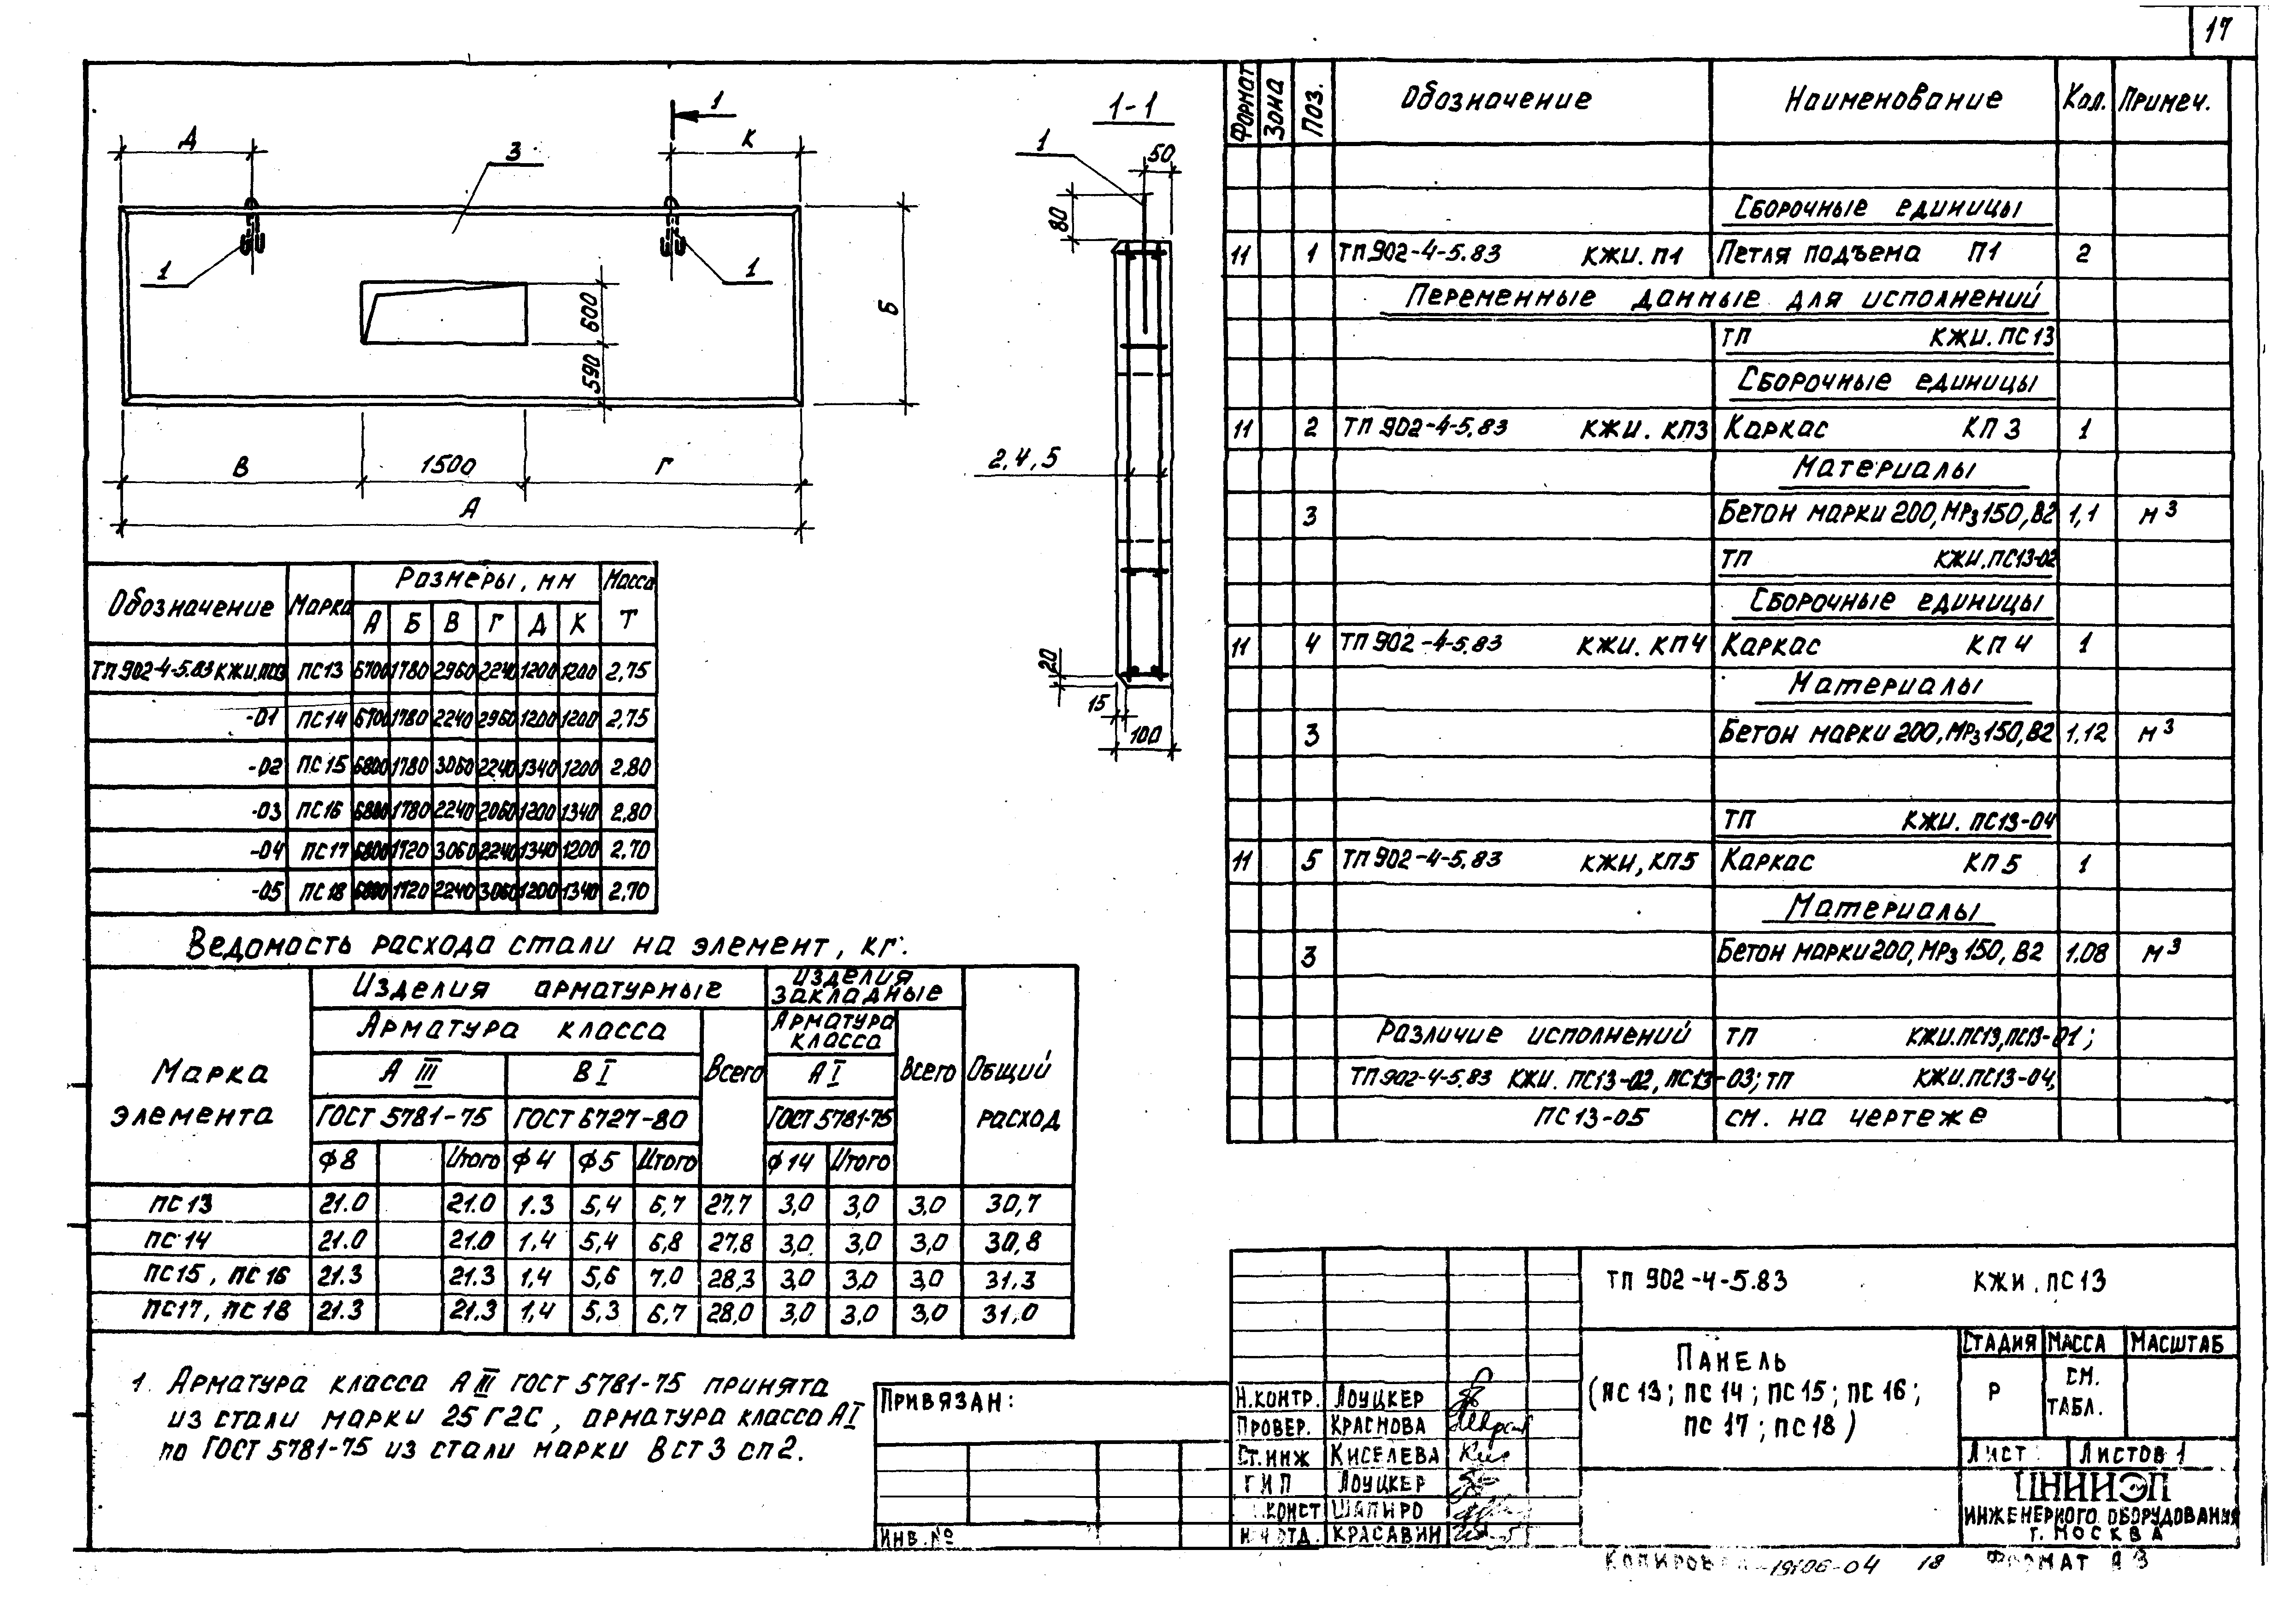 17
Д
1
К
3
1
1
600
590
Б
В
1500
Г
А
1-1
1
50
80
2,4,5
20
15
100
Обозначение Марка Размеры, мм Масса
А Б В Г Д К Т
ТП 902-4-5.83 КЖИ.ПС13 ПС13 6700 1780 2960 2240 1200 1200 2,75
-01 ПС14 6700 1780 2240 2960 1200 1200 2,75
-02 ПС15 6800 1780 3060 2240 1340 1200 2,80
-03 ПС16 6800 1780 2240 2060 1200 1340 2,80
-04 ПС17 6800 1720 3060 2240 1340 1200 2,70
-05 ПС18 6800 1720 2240 3060 1200 1340 2,70
Ведомость расхода стали на элемент, кг.
Марка элемента Изделия арматурные Изделия закладные Общий расход
Арматура класса Всего Арматура класса Всего
А III В I А I
ГОСТ 5781-75 ГОСТ 6727-80 ГОСТ 5781-75
ф8 Итого ф4 ф5 Итого ф14 Итого
ПС13 21.0 21.0 1.3 5,4 6,7 27,7 3,0 3,0 3,0 30,7
ПС14 21.0 21.0 1,4 5,4 6,8 27,8 3,0 3,0 3,0 30,8
ПС15, ПС16 21.3 21.3 1,4 5,6 7,0 28,3 3,0 3,0 3,0 31.3
ПС17, ПС18 21.3 21.3 1,4 5,3 6,7 28,0 3,0 3,0 3,0 31,0
1. Арматура класса А III ГОСТ 5781-75 принята
из стали марки 25Г2С, арматура класса А I
по ГОСТ 5781-75 из стали марки ВСт3 сп2.
Привязан:
Инв. №
Формат Зона Поз. Обозначение Наименование Кол. Примеч.
Сборочные единицы
11 1 ТП 902-4-5.83 КЖИ. П1 Петля подъема П1 2
Переменные данные для исполнений
ТП КЖИ. ПС13
Сборочные единицы
11 2 ТП 902-4-5.83 КЖИ. КП3 Каркас КП3 1
Материалы
3 Бетон марки 200, Мрз 150, В2 1,1 м³
ТП КЖИ.ПС13-02
Сборочные единицы
11 4 ТП 902-4-5.83 КЖИ. КП4 Каркас КП4 1
Материалы
3 Бетон марки 200, Мрз 150, В2 1,12 м³
ТП КЖИ. ПС13-04
11 5 ТП 902-4-5.83 КЖИ, КП5 Каркас КП5 1
Материалы
3 Бетон марки 200, Мрз 150, В2 1.08 м³
Различие исполнений ТП КЖИ.ПС13, ПС13-01;
ТП 902-4-5.83 КЖИ. ПС13-02, ПС13-03; ТП КЖИ.ПС13-04,
ПС13-05 см. на чертеже
ТП 902-4-5.83 КЖИ. ПС13
Панель
(ПС13; ПС14; ПС15; ПС16;
ПС17; ПС18)
Стадия Масса Масштаб
Р см. табл.
Лист Листов 1
ЦНИИЭП
инженерного оборудования
г. Москва
Н.контр. Лоуцкер
Провер. Краснова
Ст.инж Киселева
ГИП Лоуцкер
.конст Шапиро
Нач отд. Красавин
-04 18 Формат А3